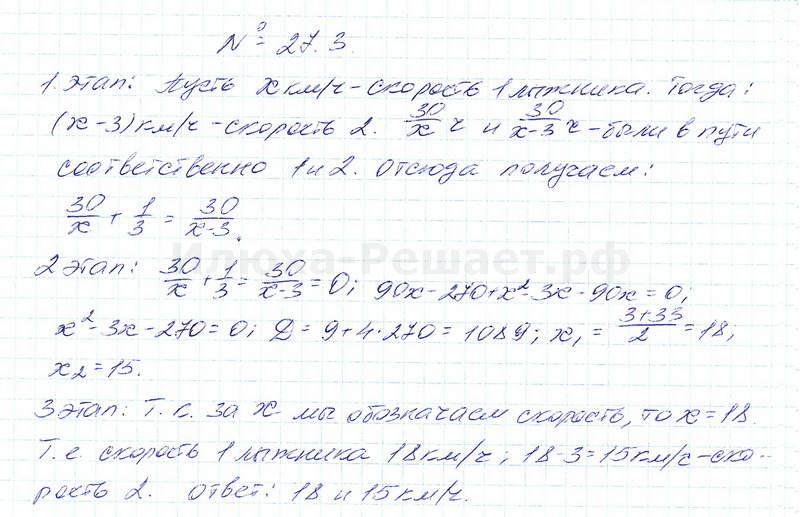 № 27.3.
1. этап: Пусть x км/ч - скорость 1 лыжника. Тогда:
(x-3) км/ч - скорость 2. 30/x ч и 30/x-3 ч - были в пути
соответственно 1 и 2. Отсюда получаем:
30/x + 1/3 = 30/x-3.
Илюха-Решает.рф
2 этап: 30/x + 1/3 = 30/x-3 = 0; 90x - 270 + x² - 3x - 90x = 0;
x² - 3x - 270 = 0; D = 9 + 4·270 = 1089; x₁ = 3+33/2 = 18;
x₂ = 15.
3 этап: Т.к. за x мы обозначаем скорость, то x = 18.
Т.е. скорость 1 лыжника 18 км/ч; 18-3=15 км/ч - ско-
рость 2. Ответ: 18 и 15 км/ч.